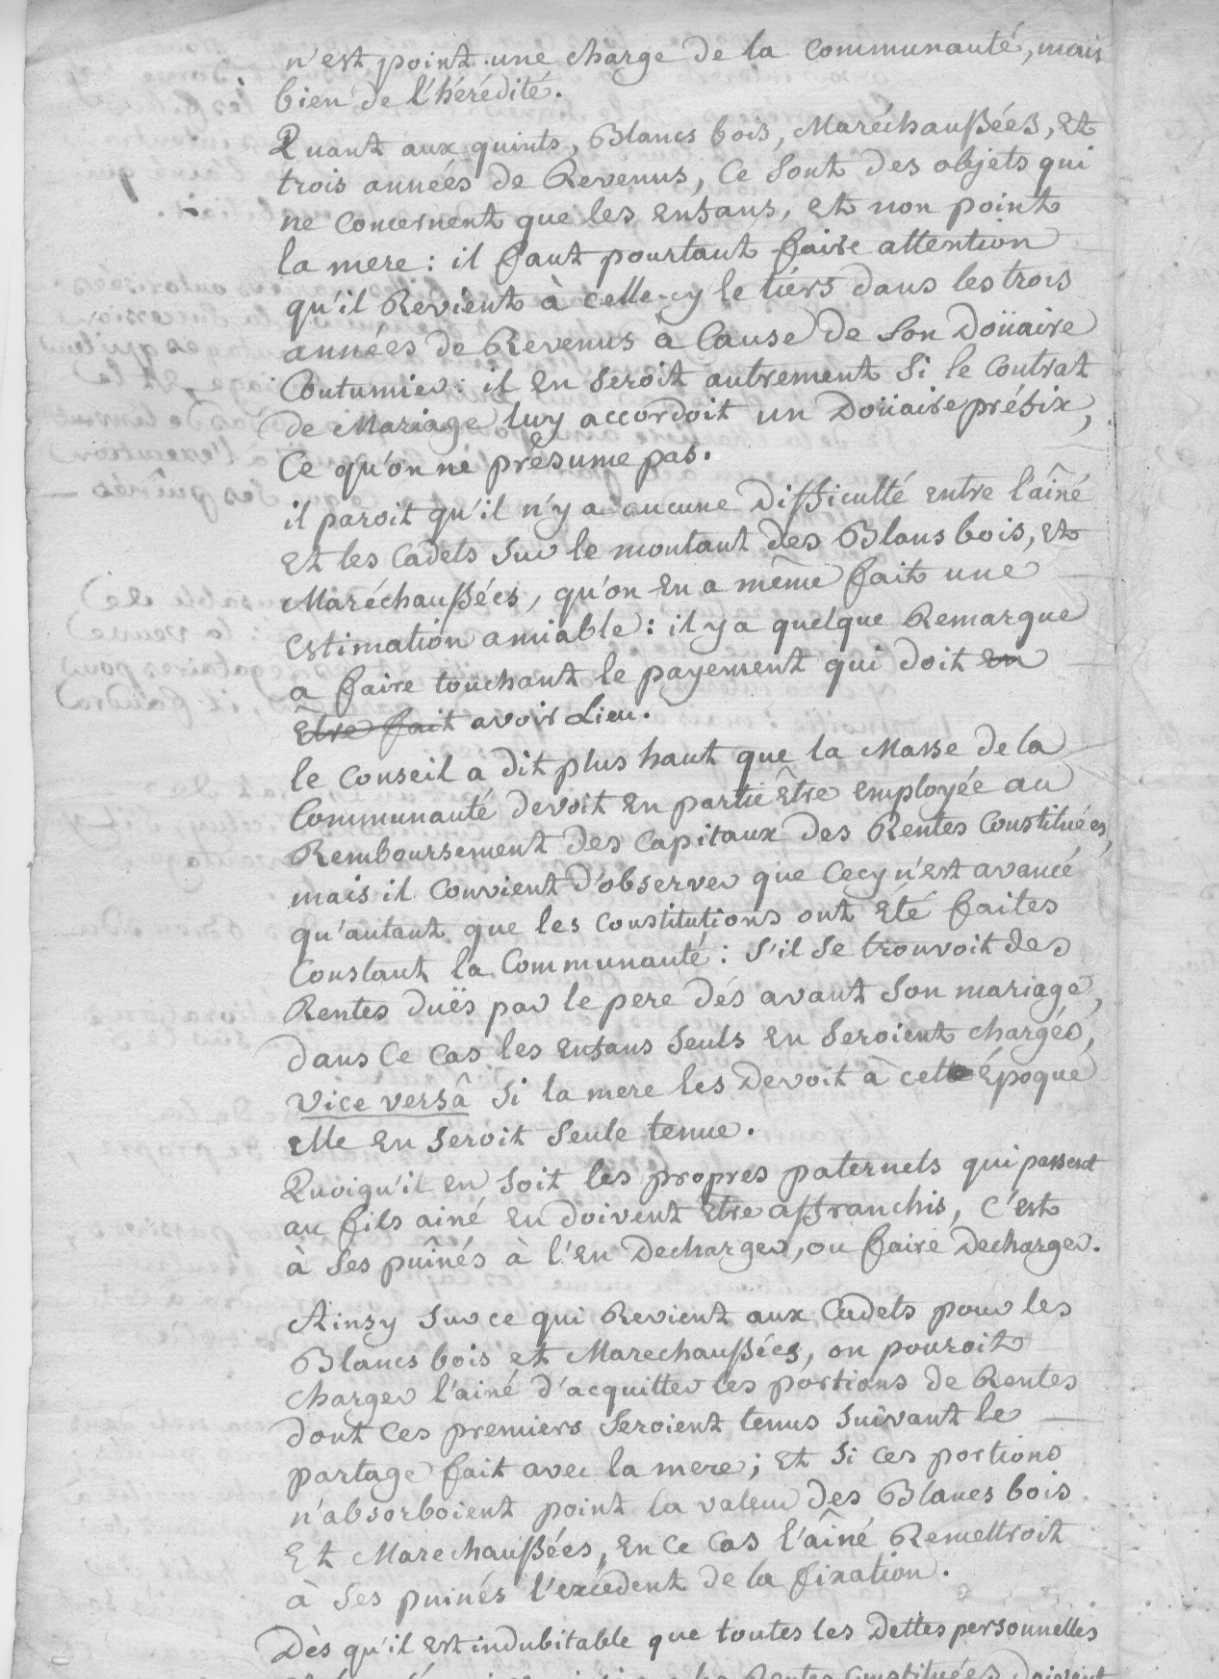 n'est point une charge de la communauté, mais
bien de l'hérédité.
Quant aux quints, Blancs bois, Maréchaussées, Et
trois années de Revenus, Ce sont des objets qui
ne concernent que les Enfans, Et non point
la mere : il faut pourtant faire attention
qu'il Revient à celle-cy le tiérs dans les trois
années de Revenus à Cause de son Doüaire
Coutumier : il En seroit autrement Si le Contrat
de Mariage luy accordoit un Doüaire préfix,
Ce qu'on ne présume pas.
il paroit qu'il n'y a aucune Difficulté entre l'aîné
Et les Cadets Sur le montant des Blans bois, Et
Maréchaussées, qu'on En a même fait une
Estimation amiable : il y a quelque Remarque
a faire touchant le payement qui doit en
Être fait avoir Lieu.
le Conseil a dit plus haut que la Masse de la
Communauté devoit En partie Être Employée au
Remboursement des Capitaux des Rentes Constituées,
mais il Convient d'observer que Cecy n'Est avancé
qu'autant que les Constitutions ont Été faites
Constant la Communauté : S'il Se trouvoit des
Rentes duës par le pere dés avant Son mariage,
dans Ce Cas les Enfans Seuls En Seroient chargés,
Vice versâ Si la mere les Devoit à cette Époque
Elle En Seroit Seule tenue.
Quoiqu'il En Soit les propres paternels qui passent
au fils ainé En doivent Etre affranchis, C'Est
à Ses puînés à l'En Decharger, ou faire Decharger.
Ainsy Sur ce qui Revient aux Cadets pour les
Blancs bois et Marechaussées, on pouroit
charger l'ainé d'acquitter les portions de Rentes
dont Ces premiers Seroient tenus Suivant le
partage fait avec la mere ; Et Si ces portions
n'absorboient point la valeur des Blancs bois
Et Marechaussées, En Ce Cas l'aîné Remettroit
à Ses puinés l'excédent de la fixation.
Dès qu'il Est indubitable que toutes les Dettes personnelles
les Rentes Constituées doivent